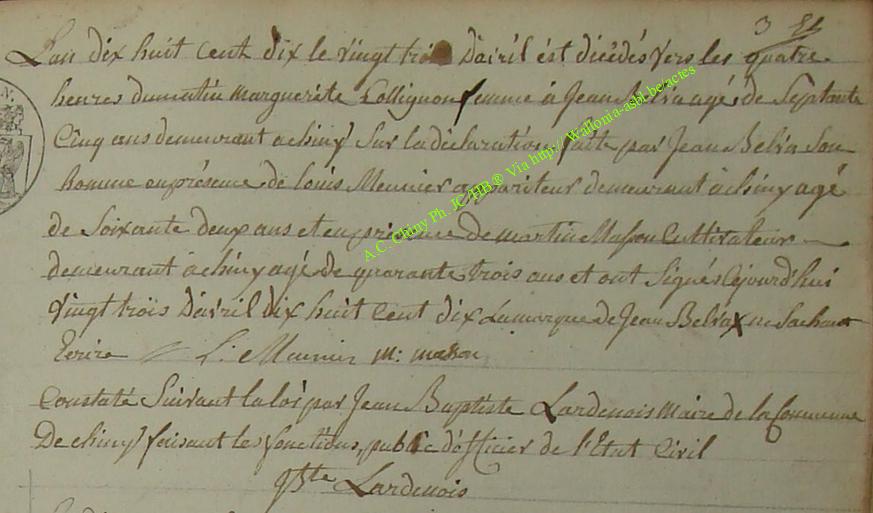 3
L'an dix huit cent dix le vingt trois D'avril est dicèdés vers les quatre
heures dumatin marguerite Collignon femme à Jean Belva agés de Septante
Cinq ans demeurant achiny Sur la déclaration faite par Jean Belva Son
homme enprésence de Louis Meunier demeurant à chiny agé
de Soixante deux ans et en présence de martin Masson Cultivateur
demeurant à chiny agé de quarante trois ans et ont Signés Cejourd'hui
vingt trois D'avril Dix huit Cent dix La marque de Jean Belva X ne Sachant
Ecrire L: Meunier M: masson
Constaté Suivant la loi par Jean Baptiste Lardenois Maire de la Commune
De chiny faisant les fonctions, public d'officier de l'Etat Civil
Lardenois
A.C. Chiny Ph. JC/HB ® Via http://Wallonia-asbl.be/actes